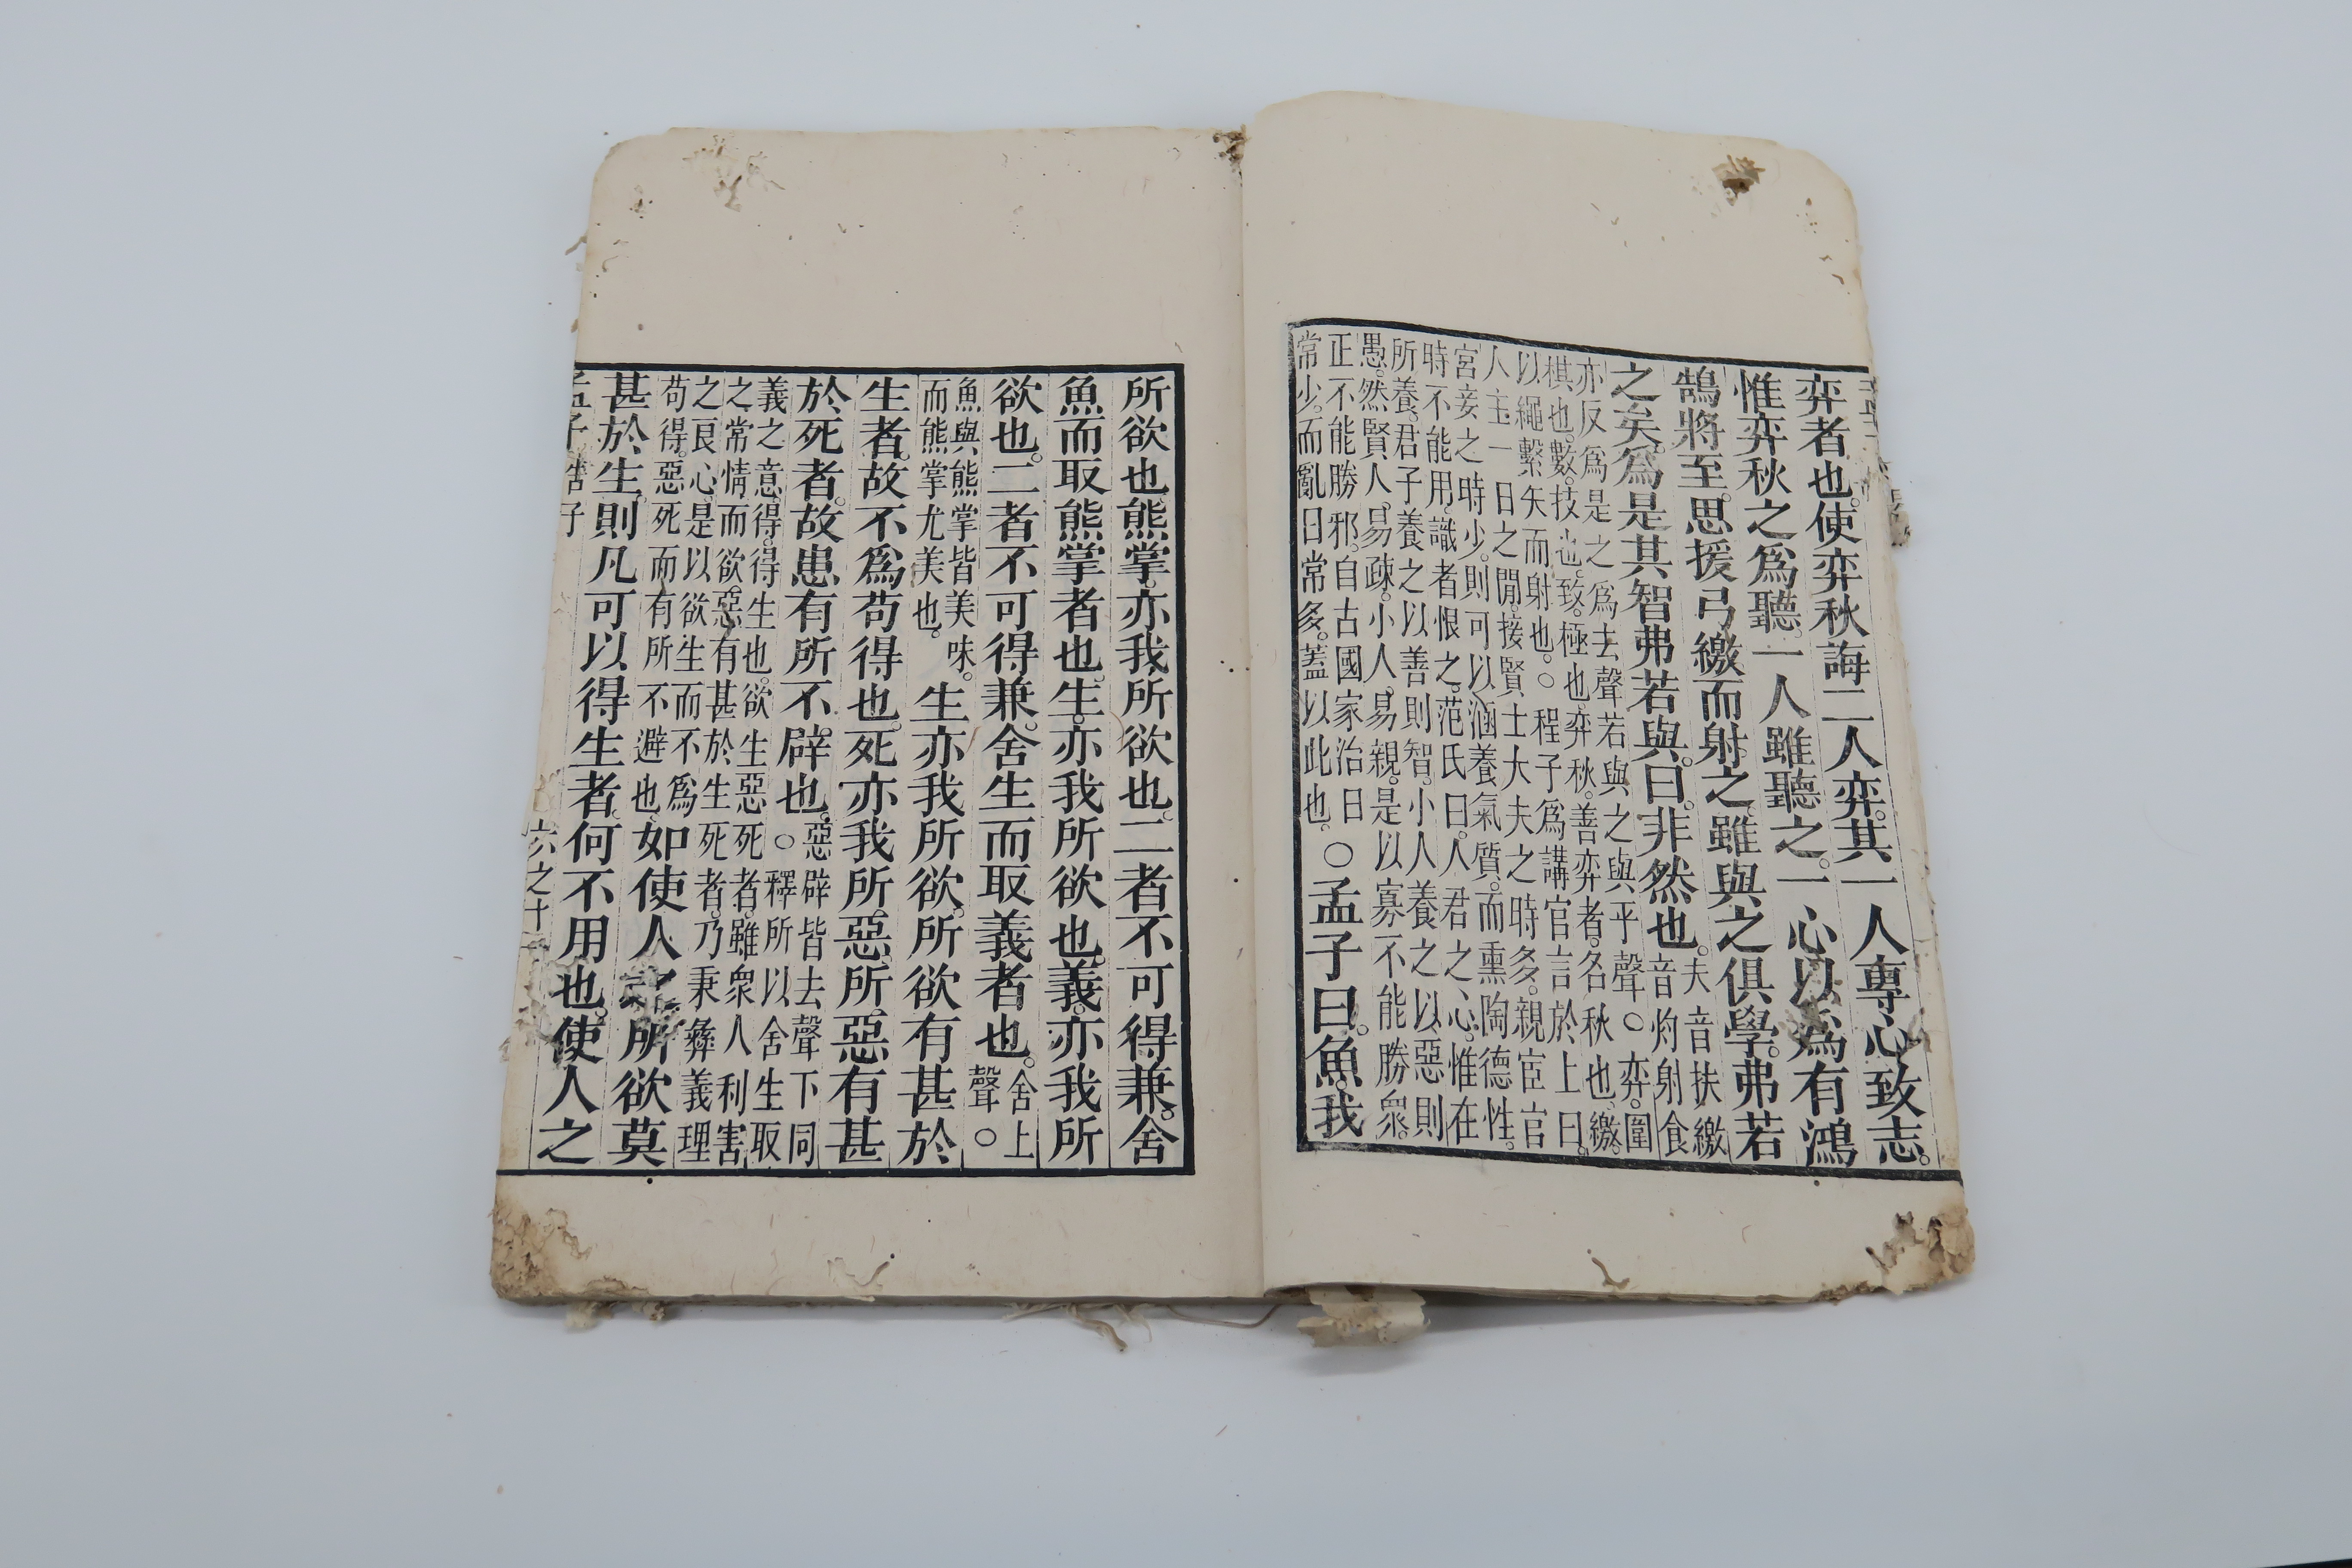 弈者也。使弈秋誨二人弈。其一人專心致志。
惟弈秋之爲聽。一人雖聽之。一心以爲有鴻
鵠將至。思援弓繳而射之。雖與之俱學。弗若
之矣。爲是其智弗若與。曰。非然也。夫音扶繳
音灼射食
亦反爲是之爲去聲若與之與平聲○弈。圍
棋也。數。技也。致。極也。弈秋。善弈者。名秋也。繳。
以繩繫矢而射也。○程子爲講官言於上曰。
人主一日之閒。接賢士大夫之時多。親宦官
宮妾之時少。則可以涵養氣質。而熏陶德性。
時不能用。識者恨之。范氏曰。人君之心。惟在
所養。君子養之以善則智。小人養之以惡則
愚。然賢人易疎。小人易親。是以寡不能勝衆。
正不能勝邪。自古國家治日
常少。而亂日常多。蓋以此也。○孟子曰。魚。我
所欲也。熊掌。亦我所欲也。二者不可得兼。舍
魚而取熊掌者也。生。亦我所欲也。義。亦我所
欲也。二者不可得兼。舍生而取義者也。舍上
聲○
魚與熊掌皆美味。
而熊掌尤美也。生亦我所欲。所欲有甚於
生者。故不爲苟得也。死亦我所惡。所惡有甚
於死者。故患有所不辟也。惡辟皆去聲下同
○釋所以舍生取
義之意。得。得生也。欲生惡死者。雖衆人利害
之常情。而欲惡有甚於生死者。乃秉彝義理
之良心。是以欲生而不爲
苟得。惡死而有所不避也。如使人之所欲莫
甚於生。則凡可以得生者。何不用也。使人之
孟子
六之十